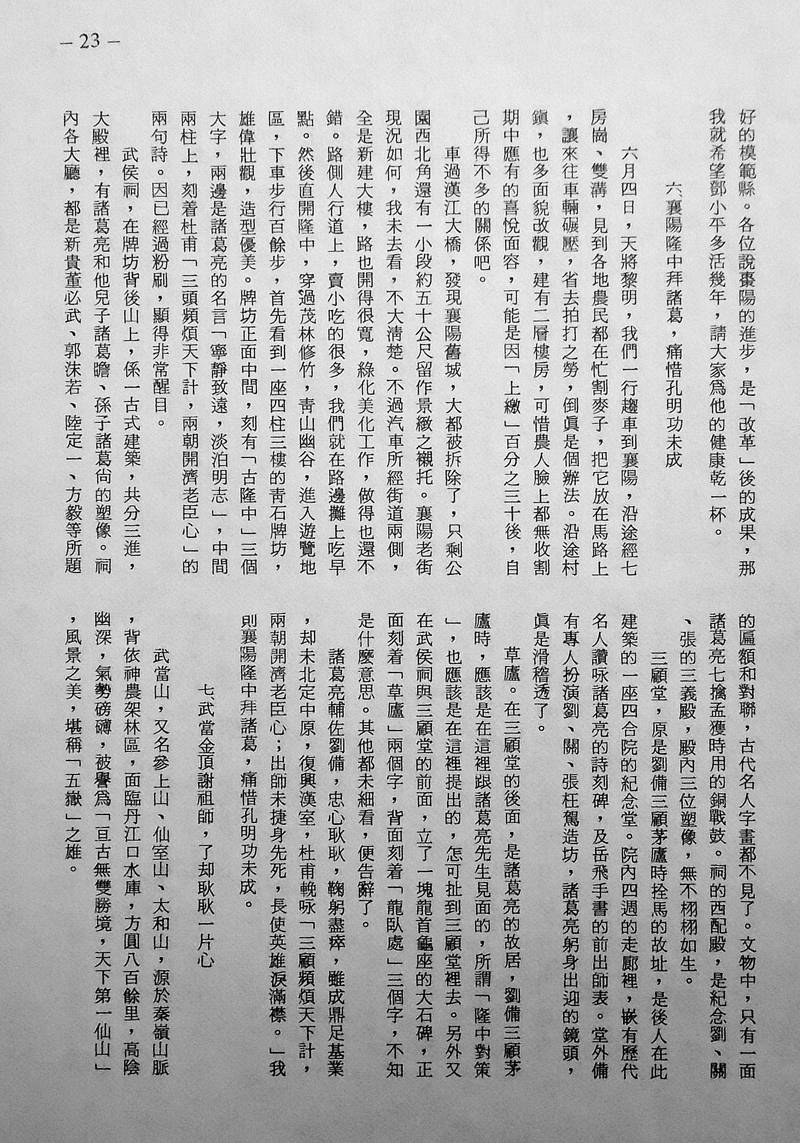 – 23 –
好的模範縣。各位說棗陽的進步，是「改革」後的成果，那
我就希望鄧小平多活幾年，請大家爲他的健康乾一杯。
六襄陽隆中拜諸葛，痛惜孔明功未成
六月四日，天將黎明，我們一行趨車到襄陽，沿途經七
房崗、雙溝，見到各地農民都在忙割麥子，把它放在馬路上
，讓來往車輛碾壓，省去拍打之勞，倒眞是個辦法。沿途村
鎭，也多面貌改觀，建有二層樓房，可惜農人臉上都無收割
期中應有的喜悅面容，可能是因「上繳」百分之三十後，自
己所得不多的關係吧。
車過漢江大橋，發現襄陽舊城，大都被拆除了，只剩公
園西北角還有一小段約五十公尺留作景緻之襯托。襄陽老街
現況如何，我未去看，不大淸楚。不過汽車所經街道兩側，
全是新建大樓，路也開得很寬，綠化美化工作，做得也還不
錯。路側人行道上，賣小吃的很多，我們就在路邊攤上吃早
點。然後直開隆中，穿過茂林修竹，靑山幽谷，進入遊覽地
區，下車步行百餘步，首先看到一座四柱三樓的靑石牌坊，
雄偉壯觀，造型優美。牌坊正面中間，刻有「古隆中」三個
大字，兩邊是諸葛亮的名言「寧靜致遠，淡泊明志」，中間
兩柱上，刻着杜甫「三顧頻煩天下計，兩朝開濟老臣心」的
兩句詩。因已經過粉刷，顯得非常醒目。
武侯祠，在牌坊背後山上，係一古式建築，共分三進，
大殿裡，有諸葛亮和他兒子諸葛瞻、孫子諸葛尙的塑像。祠
內各大廳，都是新貴董必武、郭沫若、陸定一、方毅等所題
的匾額和對聯，古代名人字畫都不見了。文物中，只有一面
諸葛亮七擒孟獲時用的銅戰鼓。祠的西配殿，是紀念劉、關
、張的三義殿，殿內三位塑像，無不栩栩如生。
三顧堂，原是劉備三顧茅廬時拴馬的故址，是後人在此
建築的一座四合院的紀念堂。院內四週的走廊裡，嵌有歷代
名人讚咏諸葛亮的詩刻碑，及岳飛手書的前出師表。堂外備
有專人扮演劉、關、張枉駕造坊，諸葛亮躬身出迎的鏡頭，
眞是滑稽透了。
草廬。在三顧堂的後面，是諸葛亮的故居，劉備三顧茅
廬時，應該是在這裡跟諸葛亮先生見面的，所謂「隆中對策
」，也應該是在這裡提出的，怎可扯到三顧堂裡去。另外又
在武侯祠與三顧堂的前面，立了一塊龍首龜座的大石碑，正
面刻着「草廬」兩個字，背面刻着「龍臥處」三個字，不知
是什麼意思。其他都未細看，便告辭了。
諸葛亮輔佐劉備，忠心耿耿，鞠躬盡瘁，雖成鼎足基業
，却未北定中原，復興漢室，杜甫輓咏「三顧頻煩天下計，
兩朝開濟老臣心；出師未捷身先死，長使英雄淚滿襟。」我
則襄陽隆中拜諸葛，痛惜孔明功未成。
七、武當金頂謝祖師，了却耿耿一片心
武當山，又名參上山、仙室山、太和山，源於秦嶺山脈
，背依神農架林區，面臨丹江口水庫，方圓八百餘里，高陰
幽深，氣勢磅礴，被譽爲「亘古無雙勝境，天下第一仙山」
，風景之美，堪稱「五嶽」之雄。